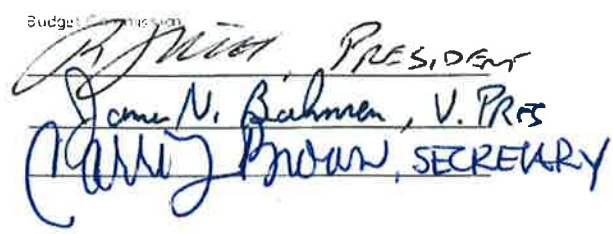 Budget Commission
, PRESIDENT
James N. , V. PRES
Larry Brown, SECRETARY